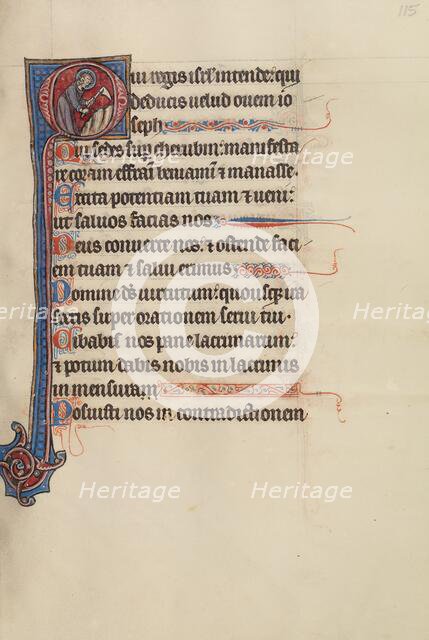 115
Qui regis isrl' intende: qui
deducis uelud ouem io
seph
Qui sedes sup cherubin: manifesta
re coram effraim beniamin & manasse.
Excita potentiam tuam & ueni:
ut saluos facias nos
Deus conuerte nos: & ostende faci
em tuam & salui erimus
Domine ds uirtutum: quousq; ira
sceris super orationem serui tui.
Cibabis nos pane lacrimarum:
& potum dabis nobis in lacrimis
in mensuram
Posuisti nos in contradictionem
Heritage
Heritage
Heritage
Heritage
Heritage
Heritage
Heritage
C